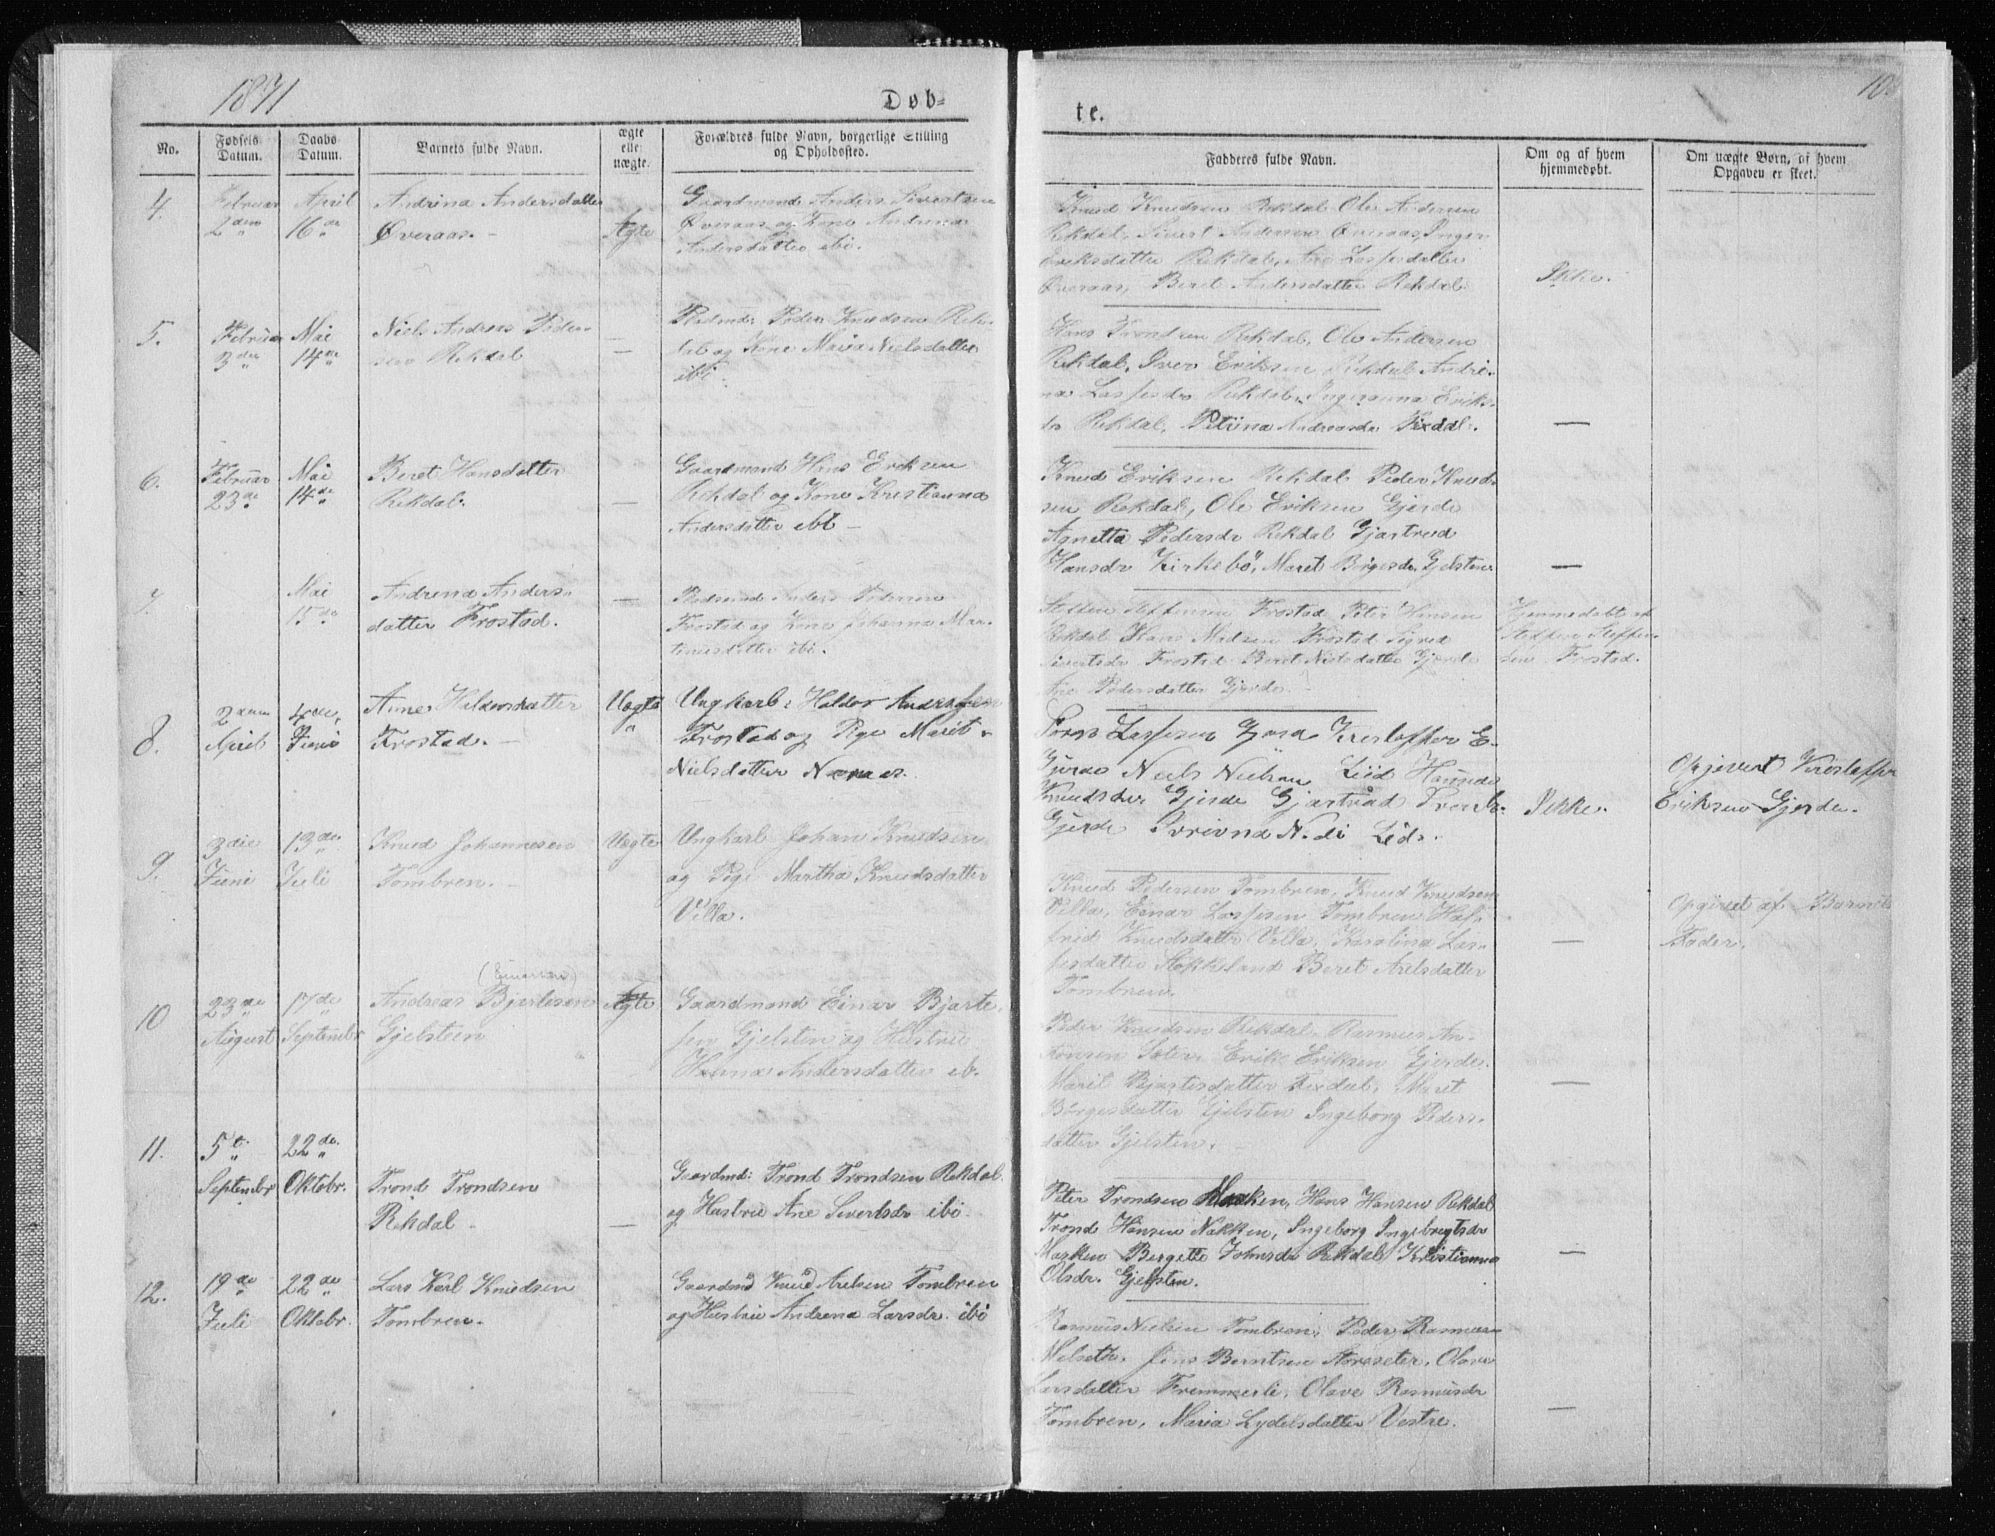 1871
Døb-
te.
10
No.
Fødsels Datum.
Daabs Datum.
Barnets fulde Navn.
ægte elle nægte.
Forældres fulde Navn, borgerlige Stilling og Opholdssted.
Fadderes fulde Navn.
Om og af hvem hjemmedøbt.
Om uægte Børn, af hvem Opgaven er skeet.
4.
Februar
2den
April
16de
Andrina Andersdatter
Øveraas.
Ægte
Gaardmand Anders Sivertsen
Øveraas og Kone Andrina
Andersdatter ibi.
Knud Knudsen Rekdal Ole Andersen
Rekdal, Sivert Andersen Øveraas, Inger
Eriksdatter Rekdal, Ane Lassesdatter
Øveraas, Beret Andersdatter Rekdal
Ikke.
5.
Februar
3die
Mai
14de
Niels Andreas Peder-
sen Rekdal
—
Peder Knudsen Rek-
dal og Kone Maria Nielsdatter
ibi.
Hans Trondsen Rekdal, Ole Andersen
Rekdal, Iver Eriksen Rekdal Andri-
na Lassesdr Rekdal, Ingeranna Eriks-
dr Rekdal, Andreasdr Fixdal.
—
6.
Februar
23de
Mai
14de
Beret Hansdatter
Rekdal.
—
Gaardmand Hans Eriksen
Rekdal og Kone Kristianna
Andersdatter ibi —
Knud Eriksen Rekdal Peder Knud-
sen Rekdal, Ole Eriksen Gjerde
Agnetta Pedersdr Rekdal Gjartrud
Hansdr Kirkebö, Maret Börgesdr Gjelsten
—
7.
Mai
15de
Andrena Anders-
datter Frostad.
—
Anders Pedersen
Frostad og Kone Johanna Mar-
tinusdatter ibi.
Steffen Steffensen Frostad Peter Hansen
Rekdal Hans Madsen Frostad Sigred
Sivertsdr Frostad Beret Nielsdatter Gjerde
Ane Pedersdatter Gjerde.
Hjemmedøbt af
Steffen Steffen-
sen Frostad.
8.
2den
April
4de
Juni
Anne Haldorsdatter
Frostad. —
Uægte
Ungkarl: Haldor Andersen
Frostad og Pige Marit
Nielsdatter
Lassesen Kristoffer E.
Gjerde Niels Nielsen Liid
Knudsdr Gjerde Gjartrud
Gjerde
Ikke.
Opgivet Kristoffer
Eriksen Gjerde.
9.
3die
Juni
13de
Juli
Knud Johannesen
Tombren. —
Uægte
Ungkarl Johan Knudsen
og Pige Martha Knudsdatter
Villa.
Knud Pedersen Tombren, Knud Knudsen
Villa, Einar Lassesen Tombren Hal-
frid Knudsdatter Villa, Karolina Las-
sesdatter Stokkeland Beret Axelsdatter
Tombren.
—
Opgivet af Barnets
Fader.
10
23de
August
17de
September
(Einarsen)
Andreas Bjertesen
Gjelsteen
Ægte
Gaardmand Einar Bjarte-
sen Gjelsten og Hustrue
Hanna Andersdatter ib.
Peder Knudsen Rekdal, Rasmus An-
Erik Eriksen Gjerde
Marit Bjartesdatter Fixdal, Maret
Börgesdatter Gjelsten Ingeborg Peders-
datter Gjelsten.
—
11.
5t
Septembr
22de
Oktobr.
Trond Trondsen
Rekdal —
—
Gaardmd: Trond Trondsen Rekdal
og Hustrue Ane Sivertsdr ibi.
Peter Trondsen Hans Hansen Rekdal
Trond Hansen Nakken, Ingeborg Ingebregtsdr
Bergette Johnsdr Rekdal, Kristianna
Olsdr. Gjelsten.
—
12.
19de
Juli
22de
Oktobr.
Lars Karl Knudsen
Tombren.
Gaardmd Knud Axelsen Tombren
og Hustrue Andrena Larsdr. ibi
Rasmus Nielsen Tombren, Peder
Jens Berntsen Olave
Larsdatter Fremmerli, Olave Rasmusdr
Tombren, Maria Lydelsdatter Vestre.
—